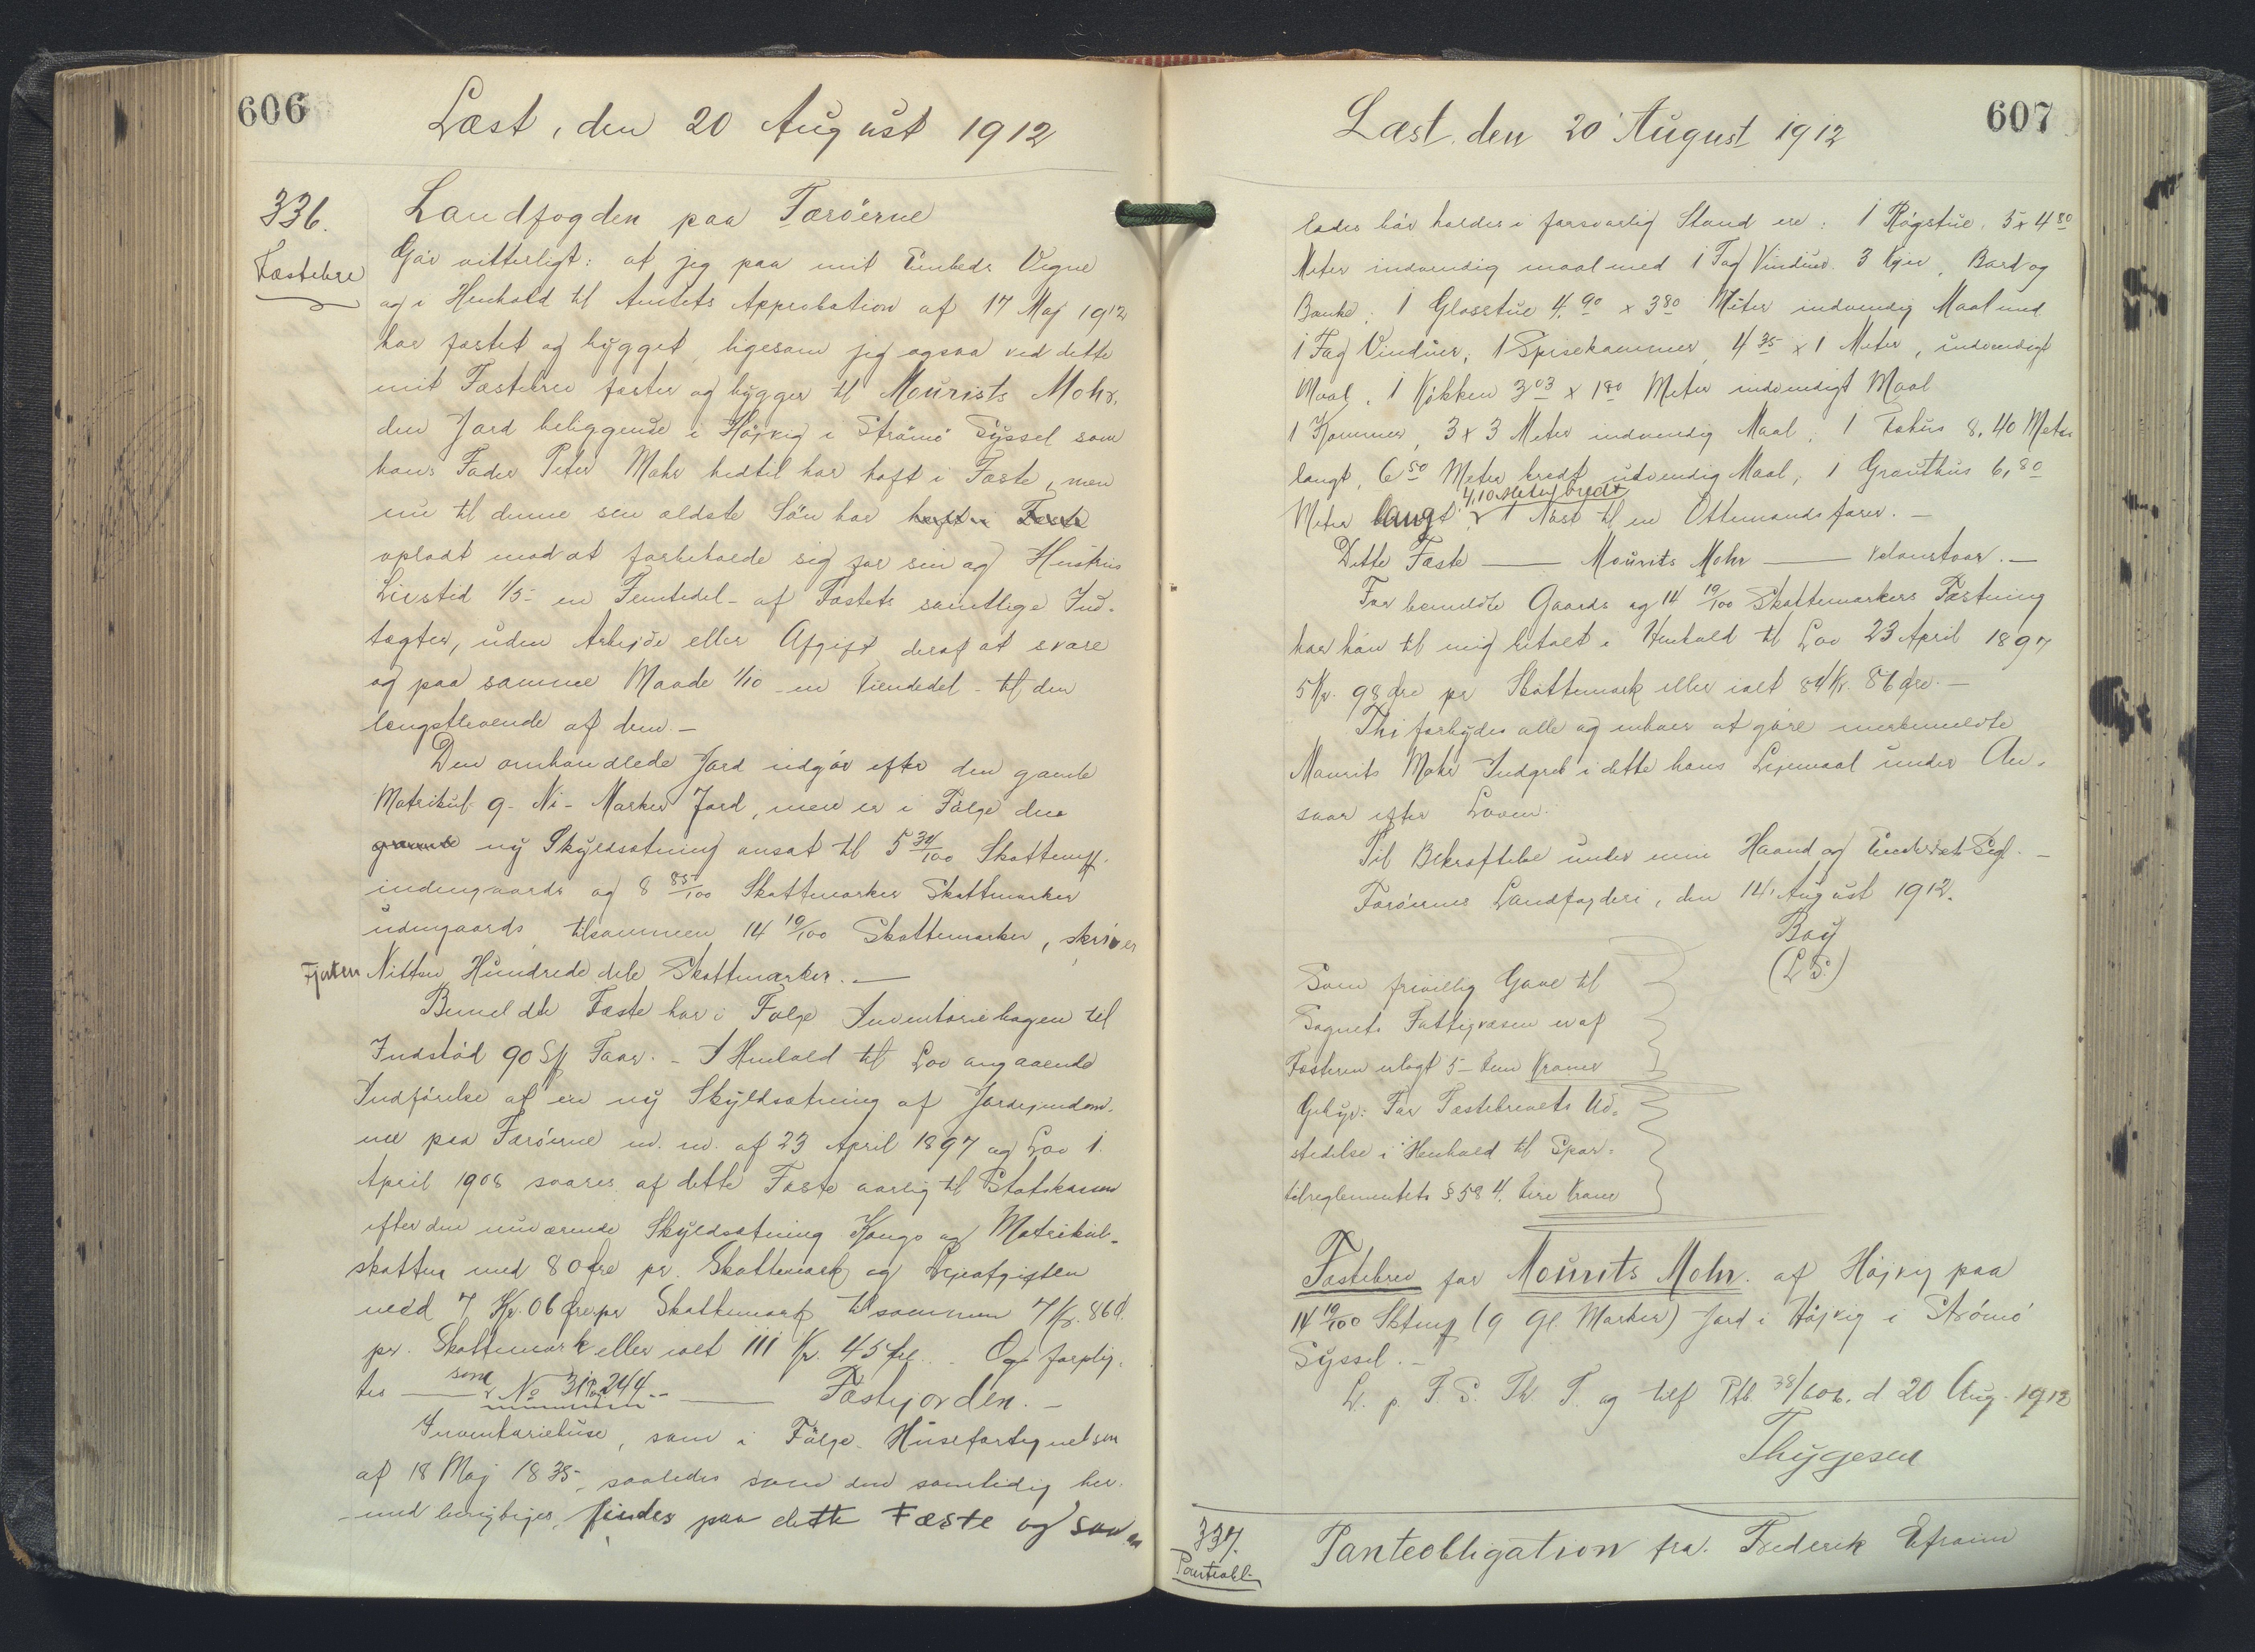 606
Læst, den 20 August 1912
336.
Fæstebre
Landfogden paa Færöerne
Gör vitterligt: at jeg paa mit Embeds Vegne
og i Henhold til Amtets Approbation af 17 Maj 1912
har fæstet og bygget, ligesom jeg ogsaa ved dette
mit Fæstebrev fæster og bygger til Mourists Mohr,
den Jord beliggende i Höjvig i Strömö Syssel som
hans Fader Peter Mohr hidtil har haft i Fæste, men
nu til denne sin ældste Sön har haft i Fæste
opladt mod at forbeholde sig for sin og Hustrus
Livstid 1/5 - en Femtedel - af Fæstets samtlige Ind-
tægter, uden Arbejde eller Afgift deraf at svare
og paa samme Maade 1/10 - en Tiendedel - til den
længstlevende af dem. -
Den omhandlede Jord udgör efter den gamle
Matrikul 9 - Ni - Marker Jord, men er i Fölge den
gamle ny Skyldsætning ansat til 5 34/100 Skattemk.
indengaards og 8 85/100 Skattemarker Skattmarker
udengaards, tilsammen 14 19/100 Skattemarker, skriver
Fjorten Nitten Hundrede dele Skattemarker. -
Bemeldte Fæste har i Fölge Inventariebogen til
Indstöd 90 St Faar. - I Henhold til Lov angaaende
Indförelse af en ny Skyldsætning af Jordejendom-
me paa Færöerne m. m. af 23 April 1897 og Lov 1.
April 1908 svares af dette Fæste aarlig til Statskassen
efter den nuværende Skyldsætning Konge og Matrikul-
skatten med 80 Øre pr. Skattemark og Lejeafgiften
med 7 Kr. 06 Øre pr Skattemark tilsammen 7 Kr. 86 Ø.
pr. Skattemark eller ialt 111 Kr. 45 Øre. - Og forplig-
tes — som No 31 Pag 244 -- — Fæstejorden. -
Inventariehuse, som i Fölge Husefortegnelsen
af 18 Maj 1835, saaledes som den samtidig her-
med berigtiges, findes paa dette Fæste og saa
607
Læst, den 20 August 1912
ledes bör holdes i forsvarlig Stand ere: 1 Rögstue, 5 x 4 80
Meter indvendig maal med 1 Fag Vinduer 3 Bord og
Bænke, 1 Glasstue 4,90 x 3 80 Meter indvendig Maal med
1 Fag Vinduer, 1 Spisekammer, 4 35 x 1 Meter, indvendigt
Maal, 1 Kökken 3 03 x 1 90 Meter indvendigt Maal
1 Kammer, 3 x 3 Meter indvendig Maal, 1 Fæhus 8,40 Meter
langt, 6 50 Meter bredt udvendig Maal, 1 Grauthus 6,80
Meter langt, 4,10 Meter bredt 1 Nöst til en Ottemandsfarer. -
Dette Fæste — Mourits Mohr — vedanstaar. -
For bemeldte Gaards og 14 19/100 Skattemarkers Fæstning
har han til mig betalt i Henhold til Lov 23 April 1897
5 Kr. 98 Øre pr Skattemark eller ialt 84 Kr. 86 Øre. -
Thi forbydes alle og enhver at göre merbemeldte
Mourits Mohr Indgreb i dette hans Lejemaal under An-
svar efter Loven.
Til Bekræftelse under min Haand og Embedets Segl. -
Færöernes Landfogderi, den 14 August 1912.
Bay
(L S.)
Som frivillig Gave til
Sognets Fattigvæsen er af
Fæsteren erlagt 5 - Fem Kroner
Gebyr: For Fæstebrevets Ud-
stedelse i Henhold til Spor-
telreglementets § 58 4, fire Krone
Fæstebrev for Mourits Mohr. af Höjvig paa
14 19/100 Sktmk (9 Gl. Marker) Jord i Höjvig i Strömö
Syssel. -
L. p. F. S. Th. T. og tilf Ptb. 38/606. d 20 Aug. 1912
Thygesen
337.
Pantobl.
Panteobligation fra Frederik Efraim